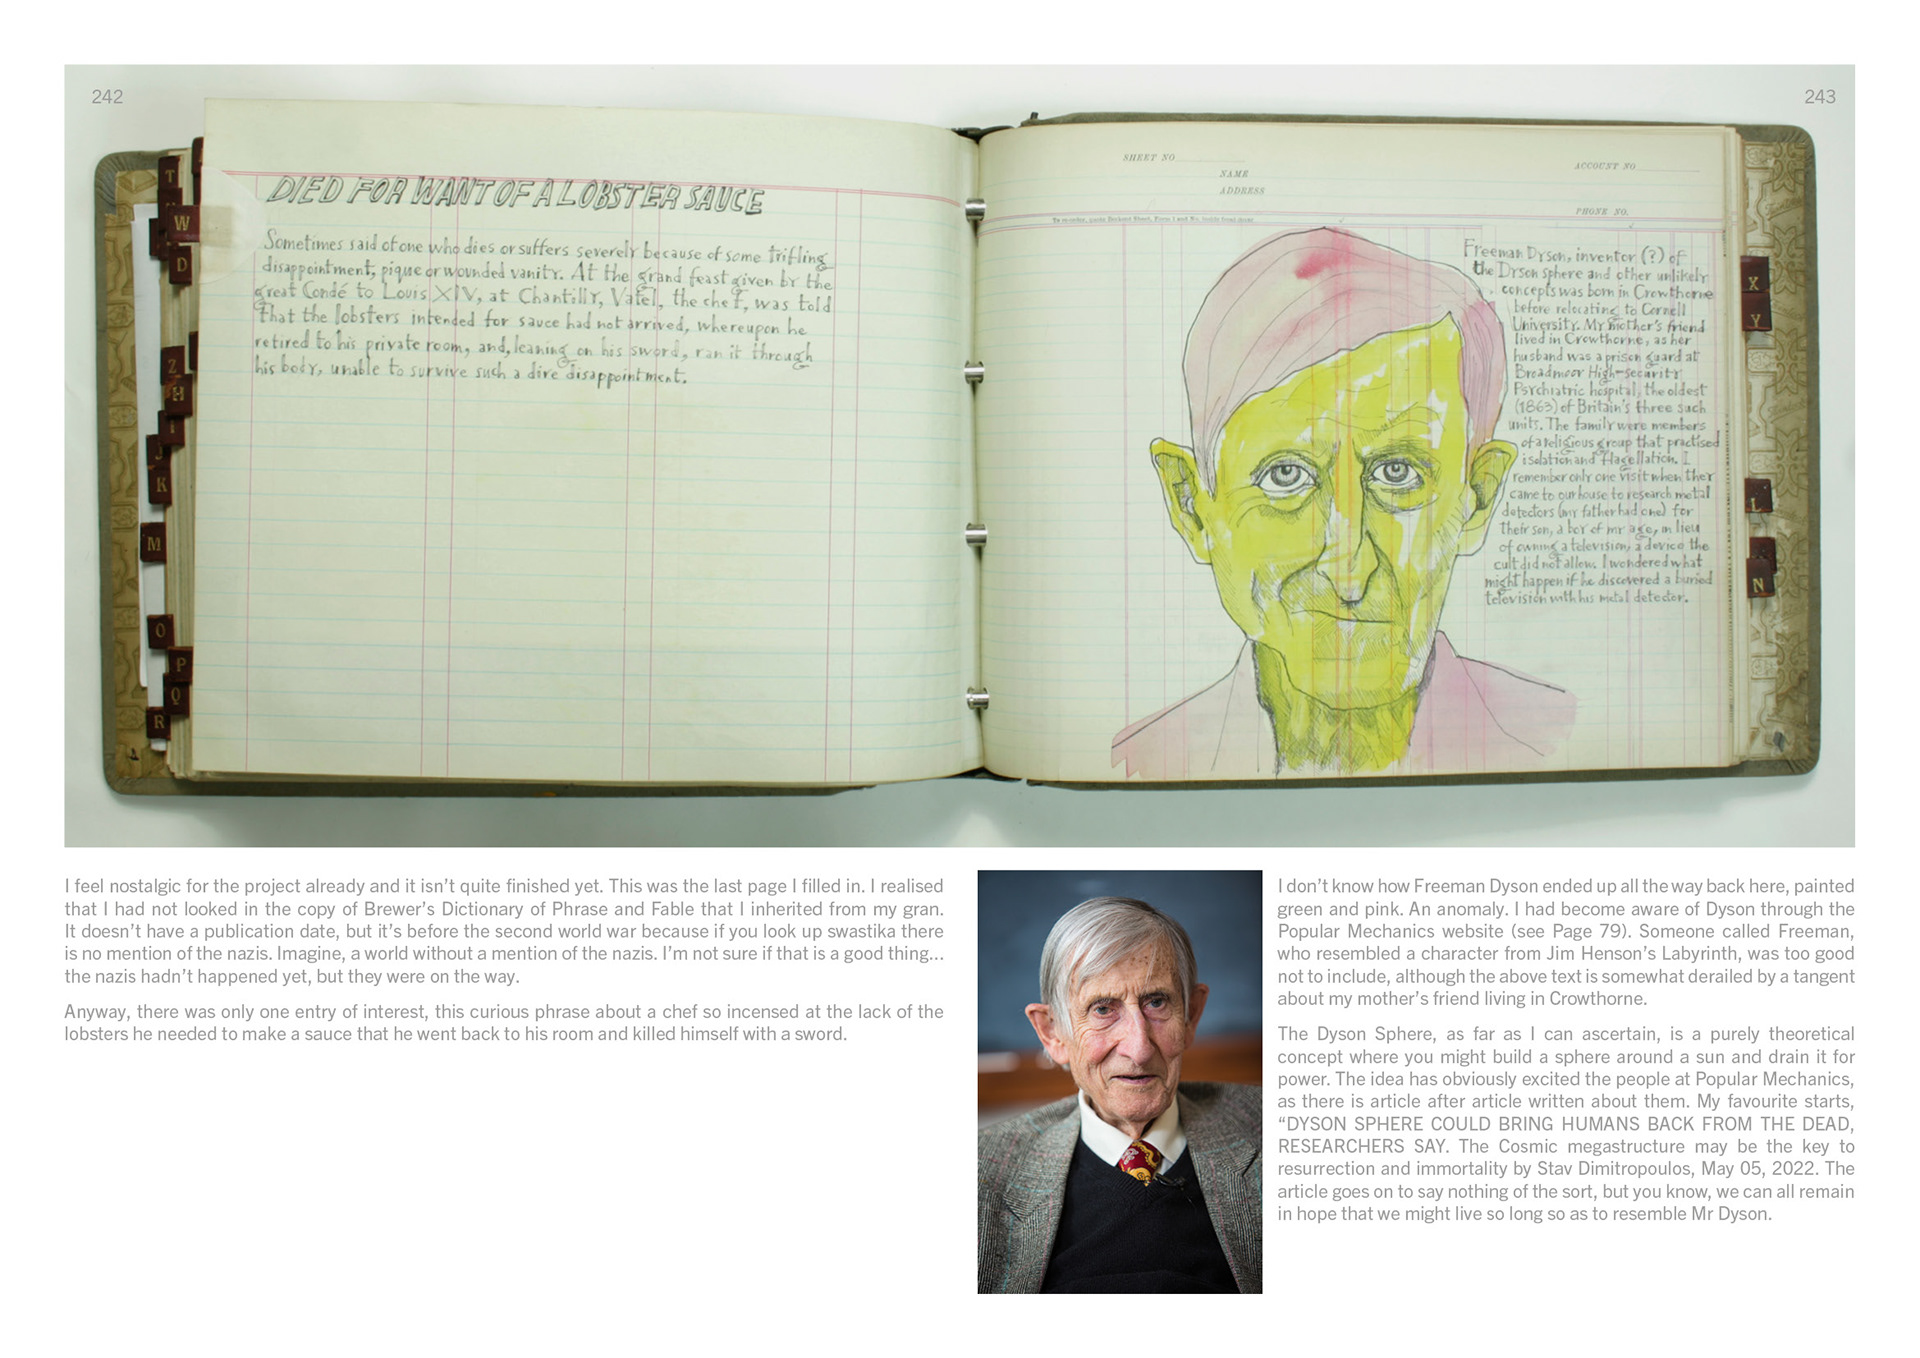 242
243
T
W
D
Z
H
I
J
K
M
O
P
Q
R
DIED FOR WANT OF A LOBSTER SAUCE
Sometimes said of one who dies or suffers severely because of some trifling
disappointment, pique or wounded vanity. At the grand feast given by the
great Condé to Louis XIV, at Chantilly, Vatel, the chef, was told
that the lobsters intended for sauce had not arrived, whereupon he
retired to his private room, and, leaning on his sword, ran it through
his body, unable to survive such a dire disappointment.
SHEET NO
NAME
ADDRESS
ACCOUNT NO
PHONE NO.
Freeman Dyson, inventor (?) of
the Dyson sphere and other unlikely
concepts was born in Crowthorne
before relocating to Cornell
University. My mother's friend
lived in Crowthorne, as her
husband was a prison guard at
Broadmoor High-security
Psychiatric hospital, the oldest
(1863) of Britain's three such
units. The family were members
of a religious group that practised
isolation and flagellation. I
remember only one visit when they
came to our house to research metal
detectors (my father had one) for
their son, a boy of my age, in lieu
of owning a television, a device the
cult did not allow. I wondered what
might happen if he discovered a buried
television with his metal detector.
X
Y
L
N
I feel nostalgic for the project already and it isn't quite finished yet. This was the last page I filled in. I realised
that I had not looked in the copy of Brewer's Dictionary of Phrase and Fable that I inherited from my gran.
It doesn't have a publication date, but it's before the second world war because if you look up swastika there
is no mention of the nazis. Imagine, a world without a mention of the nazis. I'm not sure if that is a good thing...
the nazis hadn't happened yet, but they were on the way.
Anyway, there was only one entry of interest, this curious phrase about a chef so incensed at the lack of the
lobsters he needed to make a sauce that he went back to his room and killed himself with a sword.
I don't know how Freeman Dyson ended up all the way back here, painted
green and pink. An anomaly. I had become aware of Dyson through the
Popular Mechanics website (see Page 79). Someone called Freeman,
who resembled a character from Jim Henson's Labyrinth, was too good
not to include, although the above text is somewhat derailed by a tangent
about my mother's friend living in Crowthorne.
The Dyson Sphere, as far as I can ascertain, is a purely theoretical
concept where you might build a sphere around a sun and drain it for
power. The idea has obviously excited the people at Popular Mechanics,
as there is article after article written about them. My favourite starts,
“DYSON SPHERE COULD BRING HUMANS BACK FROM THE DEAD,
RESEARCHERS SAY. The Cosmic megastructure may be the key to
resurrection and immortality by Stav Dimitropoulos, May 05, 2022. The
article goes on to say nothing of the sort, but you know, we can all remain
in hope that we might live so long so as to resemble Mr Dyson.